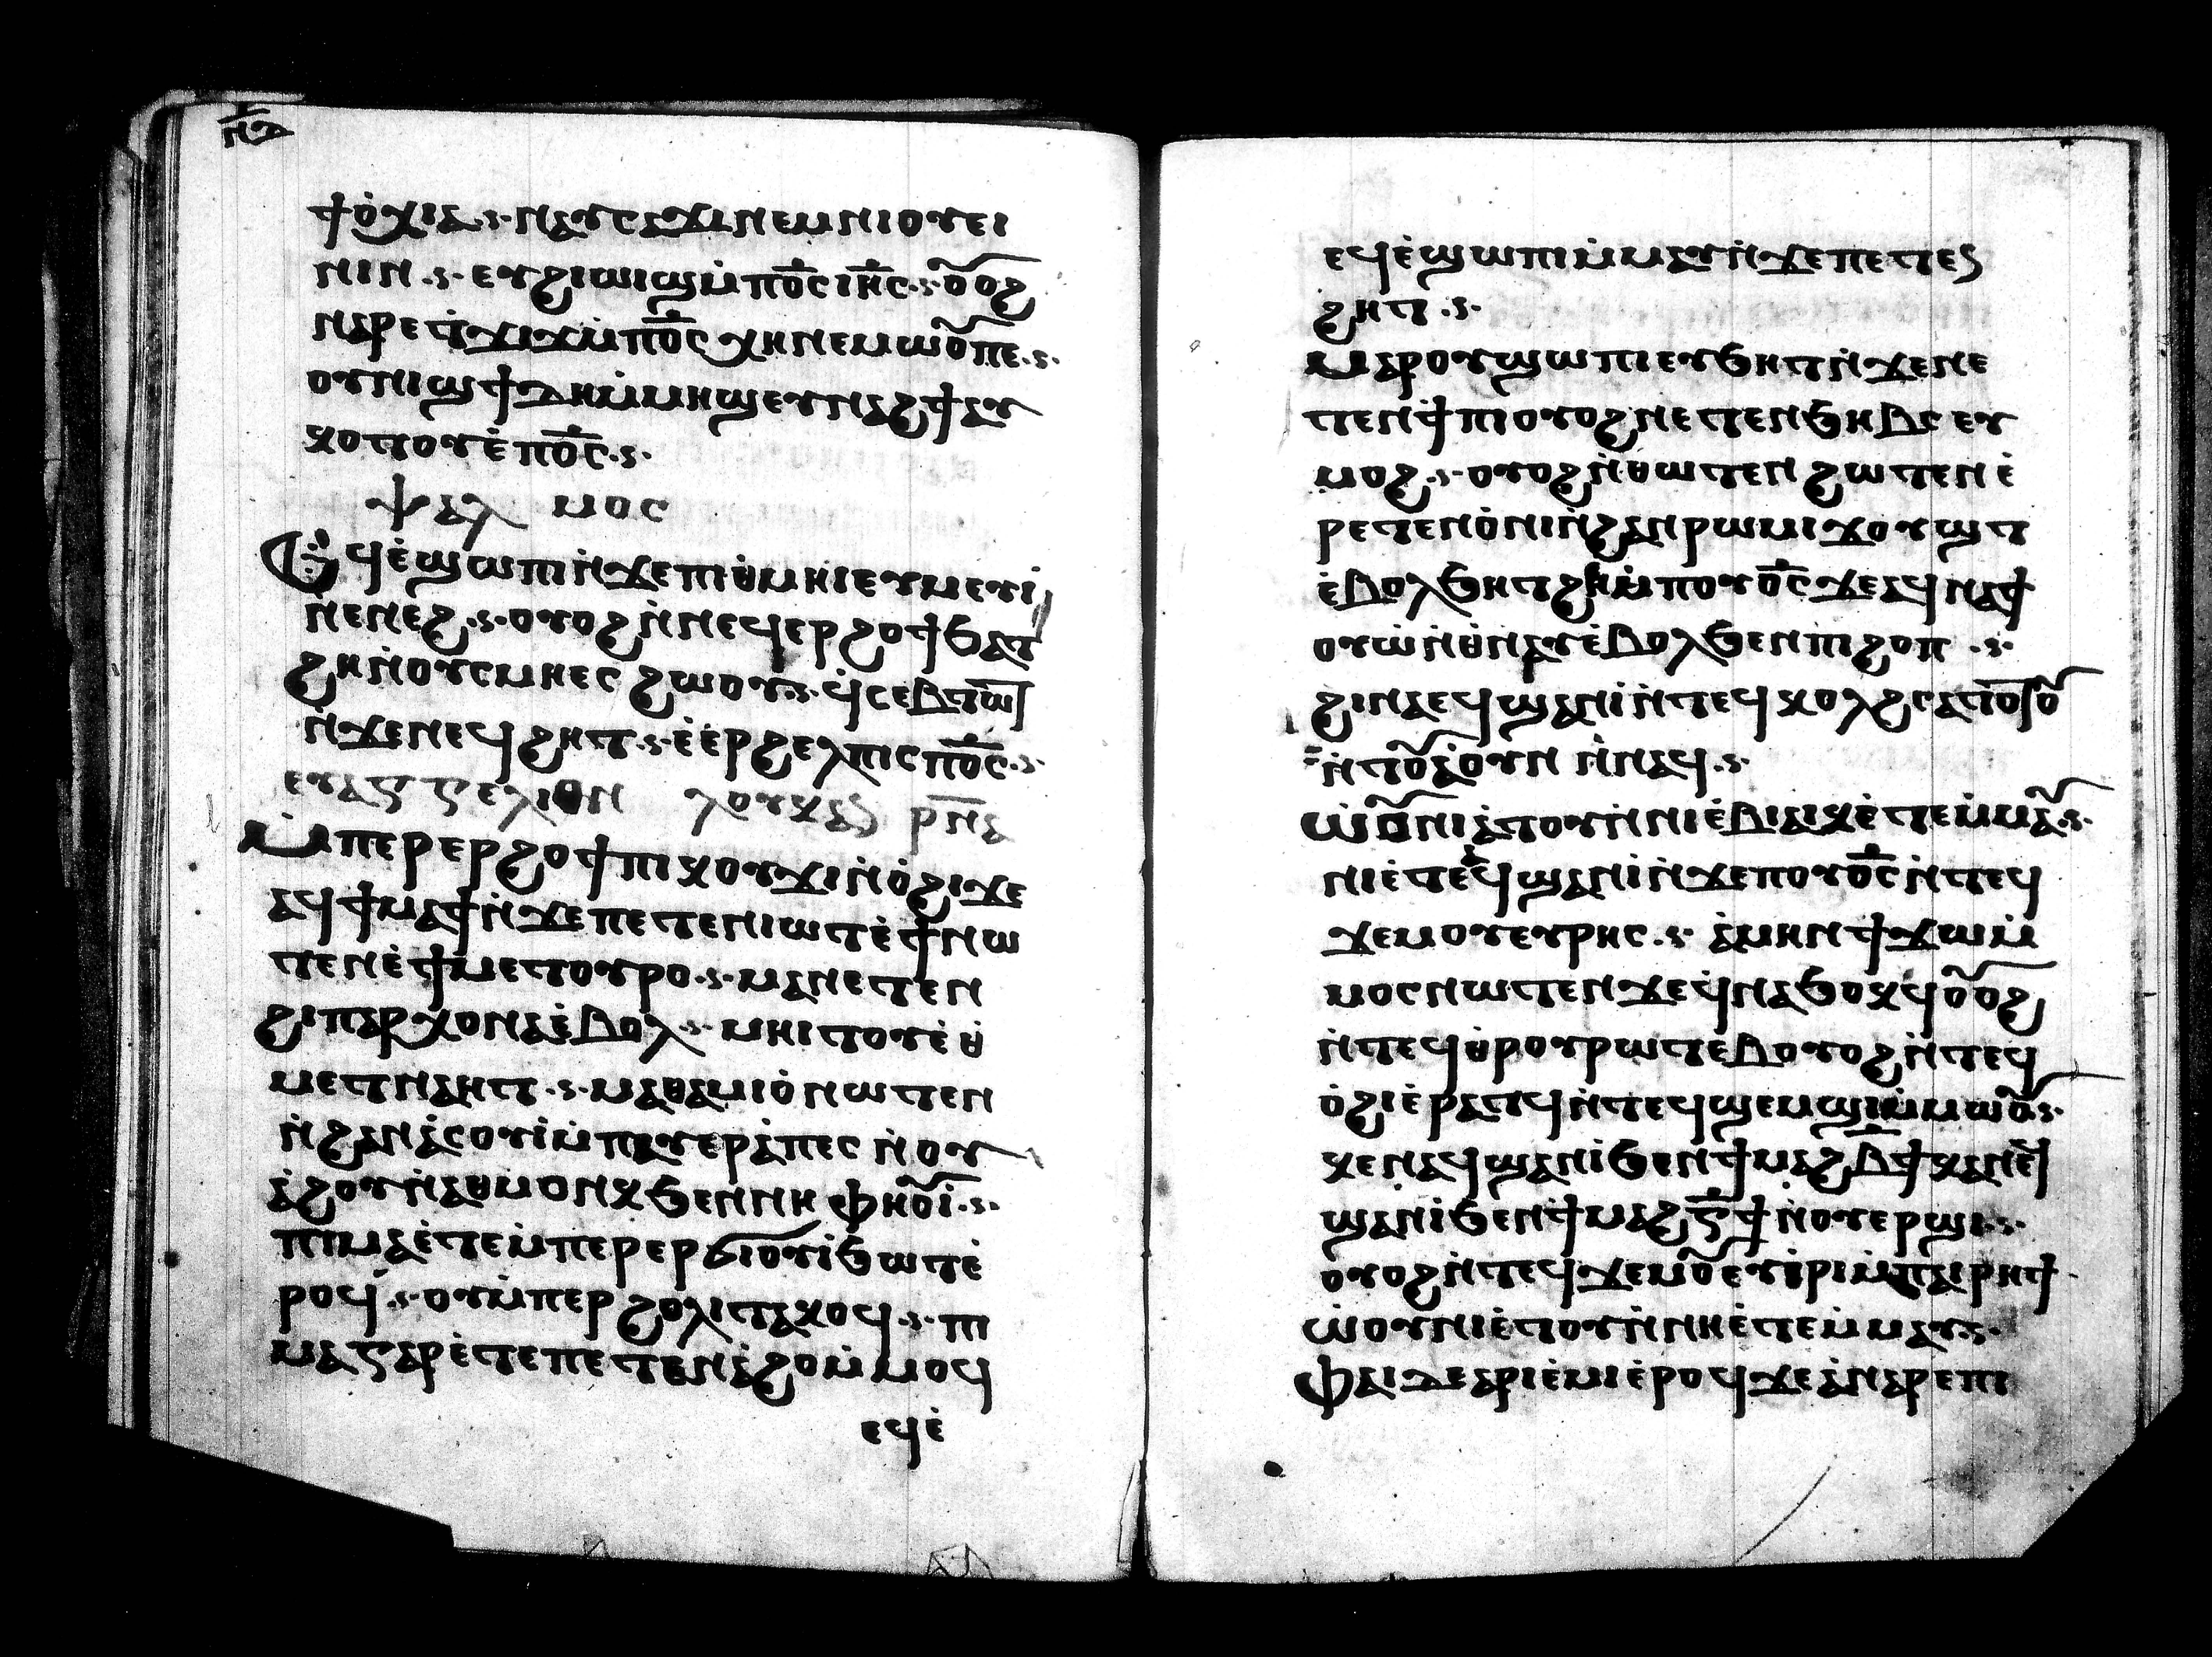 ⲛⲇ
ϯⲟ̀ⲭⲓⲁ ⲛⲁⲩⲥⲁϫⲓ ⲛⲉⲙ ⲛⲓⲟⲩⲉⲓ
ⲛⲓⲛ ⲉⲩϩⲓⲱⲓϣ ⲙ̀ⲡⲟ̅ⲥ̅ ⲓⲏ̅ⲥ̅ ⲟⲩⲟϩ
ⲛⲁⲣⲉ ⲧ̇ϫⲓϫ ⲙ̀ⲡⲟ̅ⲥ̅ ⲭⲏ ⲛⲉⲙⲱⲟⲩ ⲡⲉ
ⲟⲩⲛⲓϣϯ ⲇⲏ ⲙ̀ⲙⲏϣ ⲉⲩⲛⲁϩϯ ⲁⲩ
ⲕⲟⲧⲟⲩ ⲉ̀ⲡⲟ̅ⲥ̅
ⲯⲁⲗⲙⲟⲥ
ⲉϥⲉ̀ϣⲱⲡⲓ ⲛ̀ϫⲉ ⲡⲓⲑⲙⲏⲓ ⲉⲩⲙⲉⲩⲓ̀
ⲛⲉⲛⲉϩ ⲟⲩⲟϩ ⲛ̀ⲛⲉϥⲉⲣϩⲟϯ ϧⲁⲧ
ϩⲏ ⲛ̀ⲟⲩⲥⲙⲏ ⲉⲥϩⲱⲟⲩ ϥ̀ⲥⲉⲃⲧⲱⲧ
ⲛ̀ϫⲉ ⲛⲉϥϩⲏⲧ ⲉ̀ⲉ̀ⲣϩⲉⲗⲡⲓⲥ ⲡⲟ̅ⲥ̅
ⲉⲩⲁⲅⲅⲉⲗⲓⲟⲛ ⲗⲟⲩⲕⲁⲥ ⲣⲛⲁ
ⲙ̀ⲡⲉⲣⲉⲣϩⲟϯ ⲡⲓⲕⲟⲩϫⲓ ⲛ̀ⲟ̀ϩⲓ ϫⲉ
ⲁϥϯⲙⲁϯ ⲛ̀ϫⲉ ⲡⲉⲧⲉⲛⲓⲱⲧ ⲉ̀ϯ ⲛⲱ
ⲧⲉⲛ ⲉ̀ϯⲙⲉⲧⲟⲩⲣⲟ ⲙⲁ ⲛⲉⲧⲉⲛ
ϩⲓⲡⲁⲣⲭⲟⲛⲇⲁ ⲉ̀ⲃⲟⲗ ⲙⲏⲓⲧⲟⲩ ⲉ̀ⲑ
ⲙⲉⲧⲛⲁⲏⲧ ⲙⲁⲑⲁⲙⲓⲟ̀ ⲛⲱⲧⲉⲛ
ⲛ̀ϩⲁⲛⲁ̀ⲥⲟⲩⲓ̀ ⲙ̀ⲡⲁⲩⲉⲣⲁ̀ⲡⲉⲥ ⲛ̀ⲟⲩ
ⲁ̀ϩⲟ ⲩⲛ̀ⲁⲑⲙⲟⲛⲕ ϧⲉⲛ ⲛⲏ ⲫⲏⲟⲩⲓ̀
ⲡⲓⲙⲁ ⲉ̀ⲧⲉ ⲙ̀ⲡⲉⲣⲉⲣϭⲓⲟⲩⲓ̀ ϧⲱⲧ ⲉ̀
ⲣⲟϥ ⲟⲩ ⲙ̀ⲡⲉⲣϩⲟⲗⲓ ⲧⲁⲕⲟϥ ⲡⲓ
ⲙⲁ ⲅⲁⲣ ⲉ̀ⲧⲉ ⲡⲉⲧⲉⲛⲁ̀ϩⲟ ⲙ̀ⲙⲟϥ
ⲉϥⲉ̀
ⲉϥⲉ̀ϣⲱⲡⲓ ⲙ̀ⲙⲁⲩ ⲛ̀ϫⲉ ⲡⲉⲧⲉⲛ
ϩⲏⲧ
ⲙⲁⲣⲟⲩϣⲱⲡⲓ ⲉⲩϧⲏⲧ ⲛ̀ϫⲉ ⲛⲉ
ⲧⲉⲛϯⲡⲓ ⲟⲩⲟϩ ⲛⲉⲧⲉⲛϧⲏⲃⲥ ⲉⲩ
ⲙⲟϩ ⲟⲩⲟϩ ⲛ̀ⲑⲱⲧⲉⲛ ϩⲱⲧⲉⲛ ⲉ̀
ⲣⲉⲧⲉⲛⲟ̀ⲛⲓ ⲛ̀ϩⲁⲛⲣⲱⲙⲓ ϫⲟⲩϣⲧ
ⲉ̀ⲃⲟⲗ ϧⲏⲧϩⲏ ⲙ̀ⲡⲟⲩⲟ̅ⲥ̅ ϫⲉ ⲁϥⲛⲁϯ
ⲟⲩⲱ̀ ⲛ̀ⲑⲛⲁⲩ ⲉ̀ⲃⲟⲗϧⲉⲛ ⲡⲓϩⲟⲡ
ϩⲓⲛⲁ ⲉϥϣⲁⲛⲓ̀ ⲛ̀ⲧⲉϥⲕⲟⲗϩ ⲥⲁⲧⲟⲧⲟⲩ
ⲛ̀ⲧⲟⲩⲁ̀ⲟⲩⲛ ⲛ̀ⲛⲁϥ
ⲱ̀ⲟⲩⲛⲓⲁ̀ⲧⲟⲩ ⲛ̀ⲛⲓⲉ̀ⲃⲓⲁⲓⲕ ⲉ̀ⲧⲉⲙ̀ⲙⲁⲩ
ⲛⲓⲉ̀ⲧⲉϥϣⲁⲛⲓ̀ ⲛ̀ϫⲉ ⲡⲟⲩⲟ̅ⲥ̅ ⲛ̀ⲧⲉϥ
ϫⲉⲙⲟⲩ ⲉⲩⲣⲏⲥ ⲁ̀ⲙⲏⲛ ϯϫⲱ ⲙ̀
ⲙⲟⲥ ⲛⲱⲧⲉⲛ ϫⲉ ϥ̀ⲛⲁϧⲟⲕϥ ⲟⲩⲟϩ
ⲛ̀ⲧⲉϥⲑⲣⲟⲩⲣⲱⲧⲉⲃ ⲟⲩⲟϩ ⲛ̀ⲧⲉϥ
ⲟ̀ϩⲓ ⲉ̀ⲣⲁⲧϥ ⲛ̀ⲧⲉϥϣⲉⲙϣⲓ ⲙ̀ⲙⲱⲟⲩ
ⲕⲉⲛ ⲁϥϣⲁⲛⲓ̀ ϧⲉⲛ ϯⲙⲁϩⲃ̅ϯ ⲕⲁⲛ ⲉϥ
ϣⲁⲛⲓ̀ ϧⲉⲛ ϯⲙⲁϩⲅ̅ϯ ⲛ̀ⲟⲩⲉⲣϣⲓ
ⲟⲩⲟϩ ⲛ̀ⲧⲉϥϫⲉⲙⲟⲩ ⲉⲩⲓ̀ⲣⲓ ⲙ̀ⲡⲁⲓⲣⲏϯ
ⲱ̀ⲟⲩⲛⲓⲉ̀ⲧⲟⲩ ⲛ̀ⲛⲏ ⲉ̀ⲧⲉⲙ̀ⲙⲁⲩ
ⲫⲁⲓ ⲇⲉ ⲁⲣⲓⲉ̀ⲙⲓ ⲉ̀ⲣⲟϥ ϫⲉ ⲁ̀ⲛⲁⲣⲉ ⲡⲓ